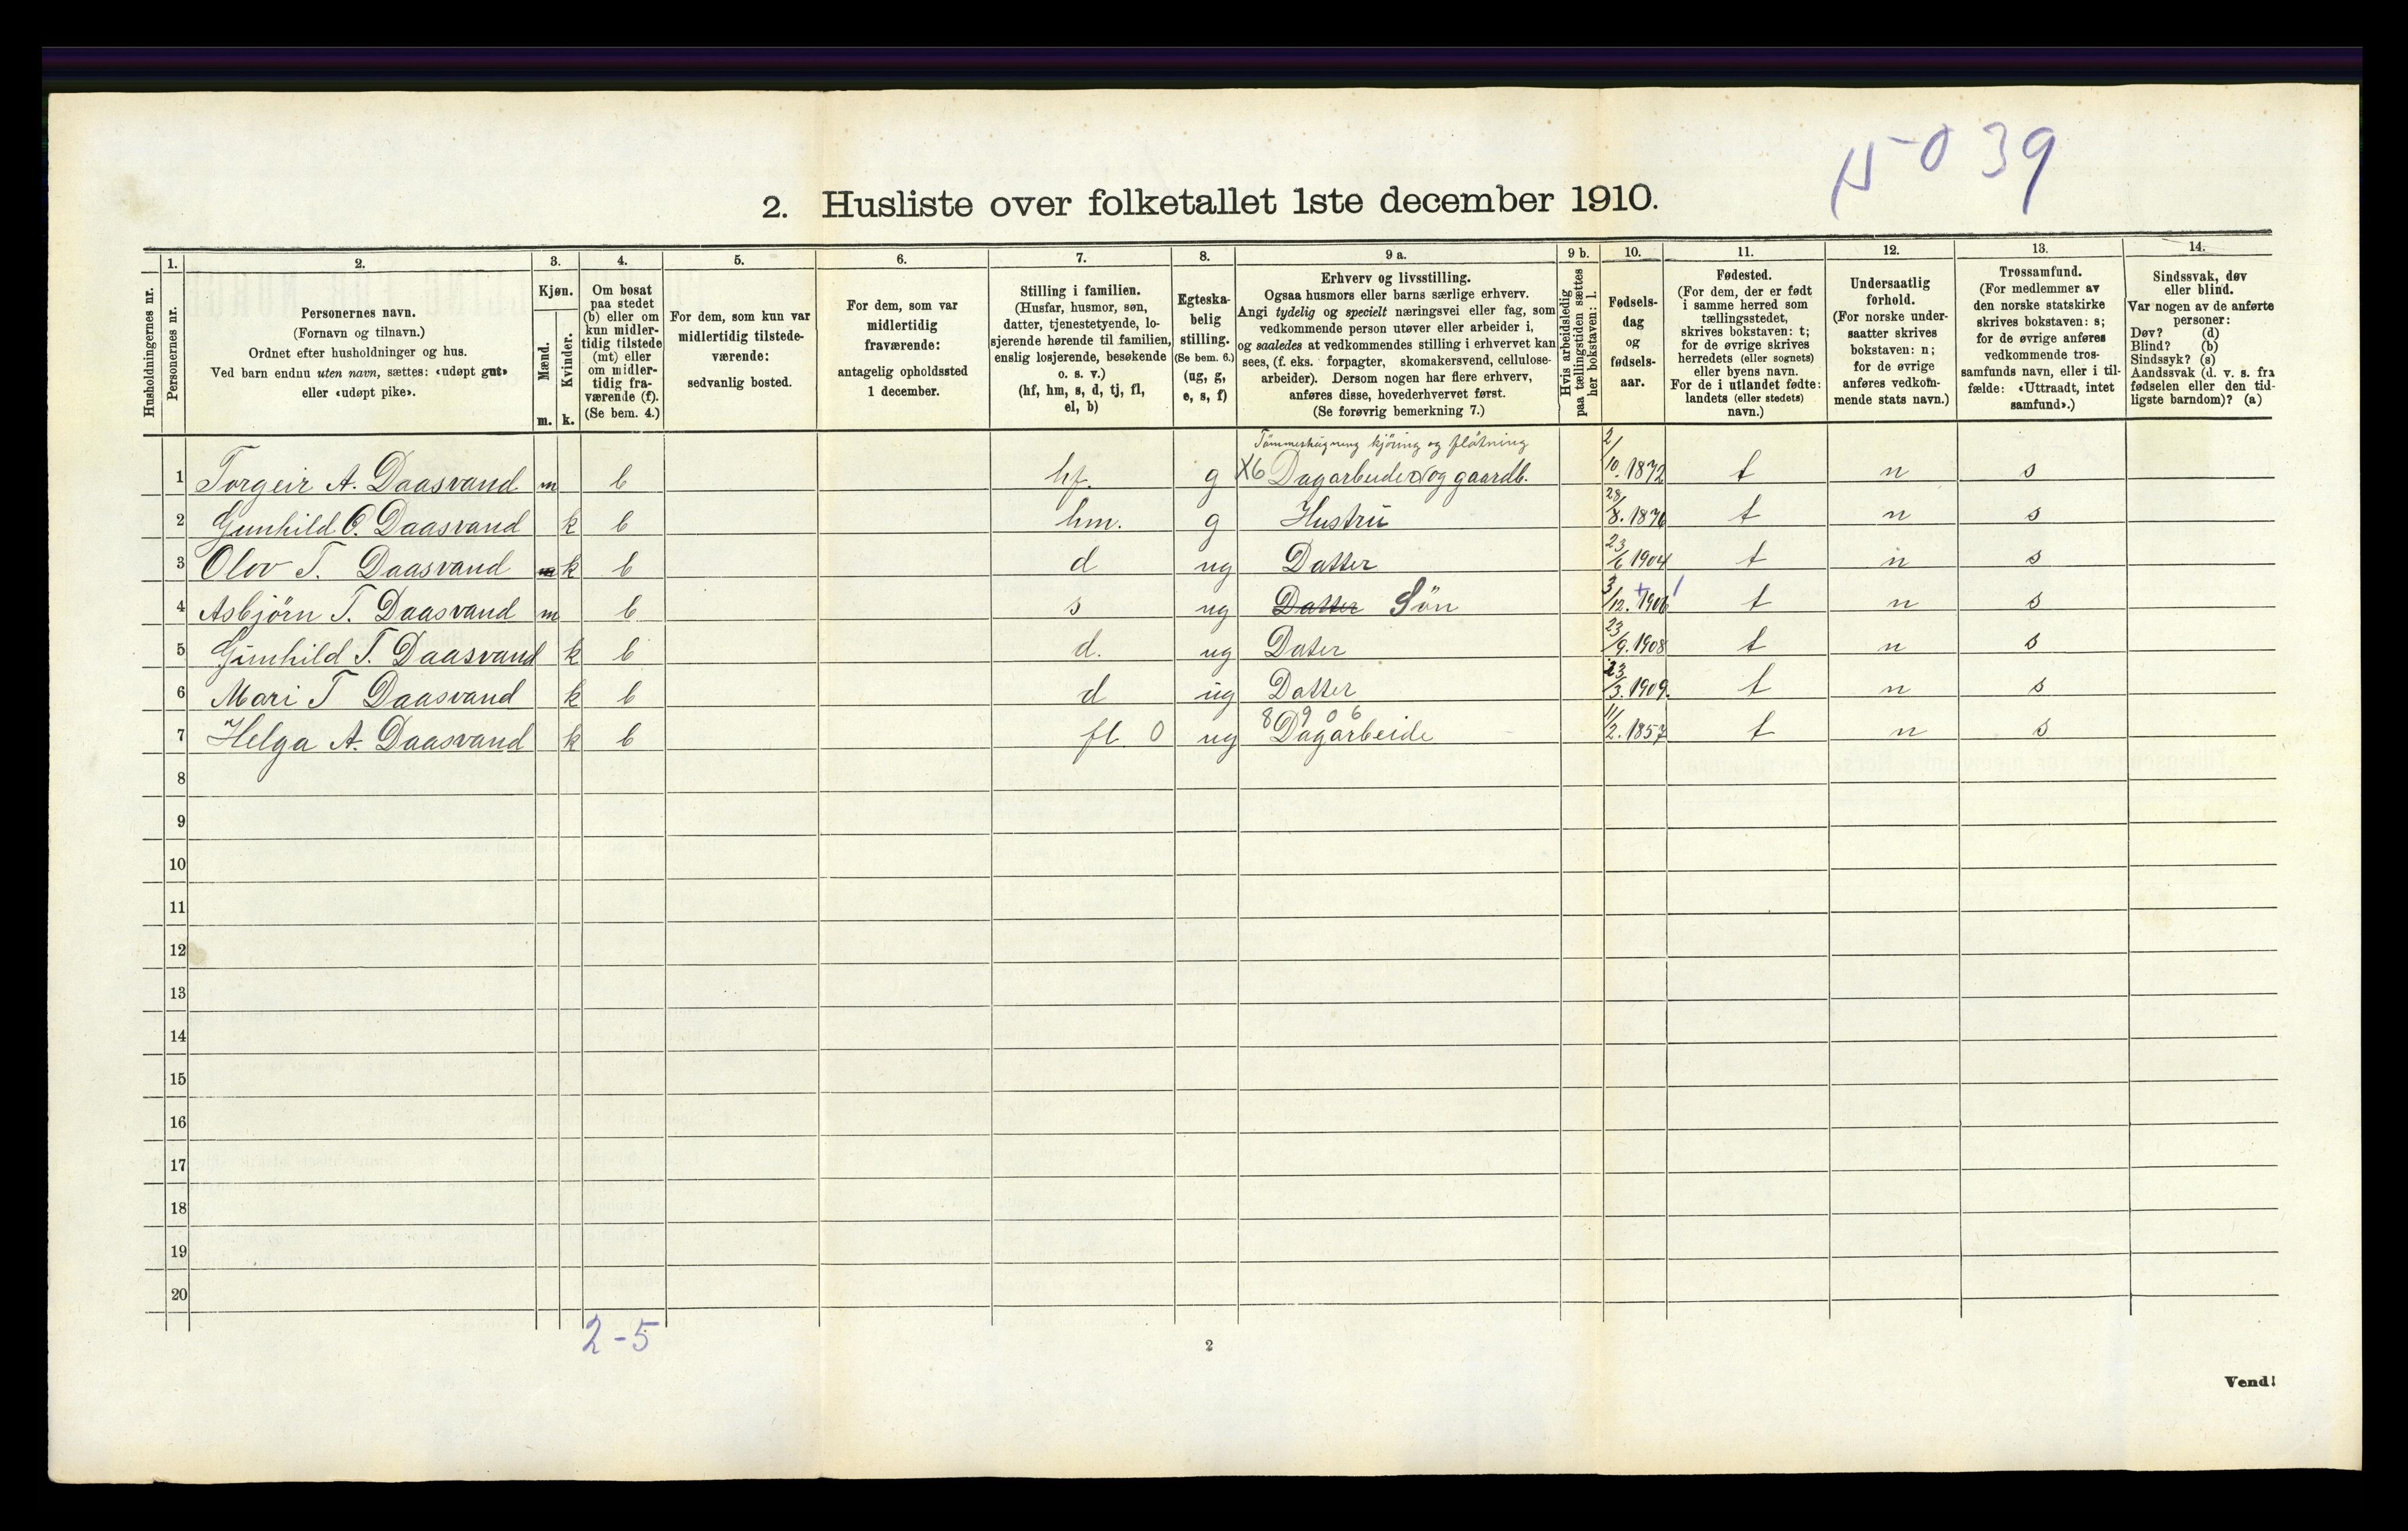 39
2. Husliste over folketallet 1ste december 1910.
Husholdningernes nr.
1. Personernes nr.
2. Personernes navn.
(Fornavn og tilnavn.)
Ordnet efter husholdninger og hus.
Ved barn endnu uten navn, sættes: «udøpt gut»
eller «udøpt pike».
3. Kjøn.
Mænd. m.
Kvinder. k.
4. Om bosat
paa stedet
(b) eller om
kun midler-
tidig tilstede
(mt) eller
om midler-
tidig fra-
værende (f).
(Se bem. 4.)
5. For dem, som kun var
midlertidig tilstede-
værende:
sedvanlig bosted.
6. For dem, som var
midlertidig
fraværende:
antagelig opholdssted
1 december.
7. Stilling i familien.
(Husfar, husmor, søn,
datter, tjenestetyende, lo-
sjerende hørende til familien,
enslig losjerende, besøkende
o. s. v.)
(hf, hm, s, d, tj, fl,
el, b)
8. Egteska-
belig
stilling.
(Se bem. 6.)
(ug, g,
e, s, f)
9 a. Erhverv og livsstilling.
Ogsaa husmors eller barns særlige erhverv.
Angi tydelig og specielt næringsvei eller fag, som
vedkommende person utøver eller arbeider i,
og saaledes at vedkommendes stilling i erhvervet kan
sees, (f. eks. forpagter, skomakersvend, cellulose-
arbeider). Dersom nogen har flere erhverv,
anføres disse, hovederhvervet først.
(Se forøvrig bemerkning 7.)
9 b. Hvis arbeidsledig
paa tællingstiden sættes
her bokstaven: l.
10. Fødsels-
dag
og
fødsels-
aar.
11. Fødested.
(For dem, der er født
i samme herred som
tællingsstedet,
skrives bokstaven: t;
for de øvrige skrives
herredets (eller sognets)
eller byens navn.
For de i utlandet fødte:
landets (eller stedets)
navn.)
12. Undersaatlig
forhold.
(For norske under-
saatter skrives
bokstaven: n;
for de øvrige
anføres vedkom-
mende stats navn.)
13. Trossamfund.
(For medlemmer av
den norske statskirke
skrives bokstaven: s;
for de øvrige anføres
vedkommende tros-
samfunds navn, eller i til-
fælde: «Uttraadt, intet
samfund».)
14. Sindssvak, døv
eller blind.
Var nogen av de anførte
personer:
Døv? (d)
Blind? (b)
Sindssyk? (s)
Aandssvak (d. v. s. fra
fødselen eller den tid-
ligste barndom)? (a)
Tömmerhugning kjöring og flötning
1 Torgeir A. Daasvand m b hf. g X6 Dagarbeider og gaardb. 2/10. 1872 t n s
2 Gunhild O. Daasvand k b hm. g Hustru 28/8. 1876 t n s
3 Olov T. Daasvand m k b d ug Datter 23/6 1904 t n s
4 Asbjörn T. Daasvand m b s ug Datter Sön 3/12. 1906 t n s
5 Gunhild T. Daasvand k b d. ug Dater 23/9. 1908 t n s
6 Mari T Daasvand k b d ug Datter 23/3. 1909. t n s
8 9 0 6
7 Helga A. Daasvand k b fl 0 ug Dagarbeide 11/2. 1857 t n s
8
9
10
11
12
13
14
15
16
17
18
19
20
2-5
2
Vend!